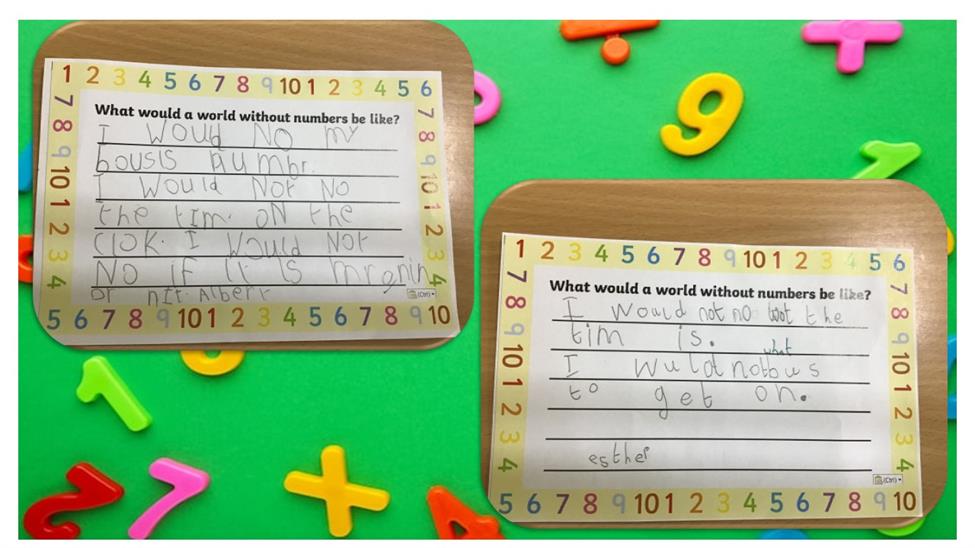 1 2 3 4 5 6 7 8 9 10 1 1 2 3 4 5 6
What would a world without numbers be like?
I Would NO my
bousis numbr.
I would Not NO
the tim. ON the
clok. I would Not
NO iF it is mronin
or nit. Albert
(Ctrl)
7 8 9 10 1 2 3 4
7 8 9 10 1 2 3 4
5 6 7 8 9 10 1 1 2 3 4 5 6 7 8 9 10
1 2 3 4 5 6 7 8 9 10 1 2 3 4 5 6
What would a world without numbers be like?
I would not no wot the
tim is.
what
I wuld not bus
to get on.
esther
(Ctrl)
7 8 9 10 1 2 3 4
7 8 9 10 1 2 3 4
5 6 7 8 9 10 1 2 3 4 5 6 7 8 9 10
9
1
1
2
7
4